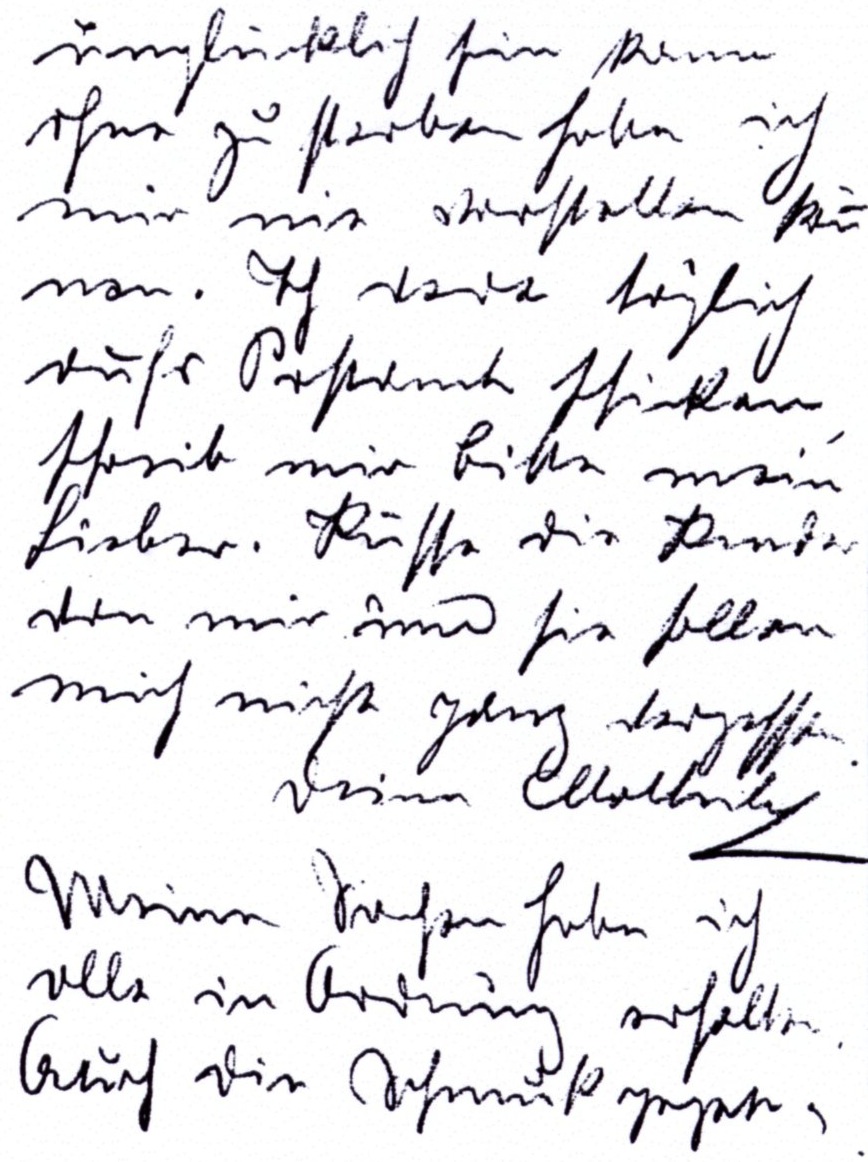 unglücklich sein kann
ohne zu sterben habe ich
mir nie vorstellen kön
nen. Ich werde täglich
aufs Postamt schicken,
schreib mir bitte mein
Lieber. Küsse die Kinder
von mir und sie sollen
mich nicht ganz vergessen.
Deine Mathilde
Meine Sachen habe ich
alle in Ordnung erhalten.
Auch die Schmuk